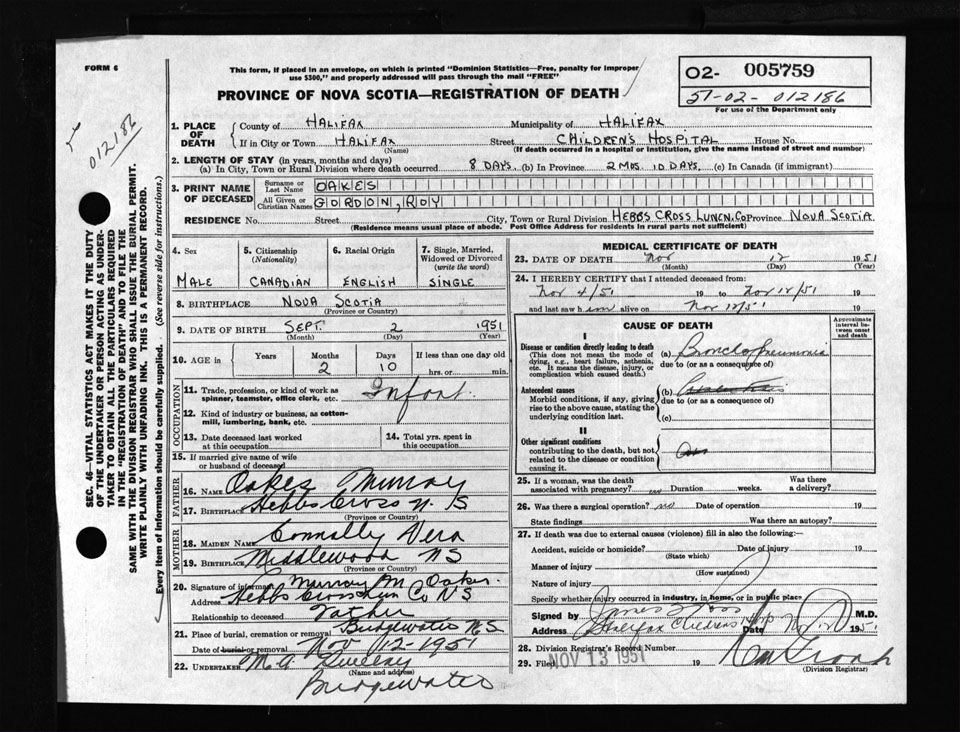 FORM 6
This form, if placed in an envelope, on which is printed "Dominion Statistics—Free, penalty for improper
use $300," and properly addressed will pass through the mail "FREE"
PROVINCE OF NOVA SCOTIA—REGISTRATION OF DEATH
O2- 005759
51-02-012186
For use of the Department only
012186
SEC. 46—VITAL STATISTICS ACT MAKES IT THE DUTY
OF THE UNDERTAKER OR PERSON ACTING AS UNDER-
TAKER TO OBTAIN ALL THE PARTICULARS REQUIRED
IN THE "REGISTRATION OF DEATH" AND TO FILE THE
SAME WITH THE DIVISION REGISTRAR WHO SHALL ISSUE THE BURIAL PERMIT.
WRITE PLAINLY WITH UNFADING INK. THIS IS A PERMANENT RECORD.
Every item of information should be carefully supplied. (See reverse side for instructions.)
1. PLACE OF DEATH County of HALIFAX Municipality of HALIFAX
If in City or Town HALIFAX Street CHILDREN'S HOSPITAL House No.
(Name) (If death occurred in a hospital or institution, give the name instead of street and number)
2. LENGTH OF STAY (in years, months and days)
(a) In City, Town or Rural Division where death occurred 8 DAYS. (b) In Province 2 MOS. 10 DAYS. (c) In Canada (if immigrant)
3. PRINT NAME OF DECEASED Surname or Last Name OAKES
All Given or Christian Names GORDON, ROY
RESIDENCE No. Street City, Town or Rural Division HEBBS CROSS LUNEN. Co Province NOVA SCOTIA.
(Residence means usual place of abode. Post Office Address for residents in rural parts not sufficient)
4. Sex 5. Citizenship (Nationality) 6. Racial Origin 7. Single, Married, Widowed or Divorced (write the word)
MALE CANADIAN ENGLISH SINGLE
8. BIRTHPLACE NOVA SCOTIA
(Province or Country)
9. DATE OF BIRTH SEPT. 2 1951
(Month) (Day) (Year)
10. AGE in Years Months Days If less than one day old
2 10 hrs. or min.
OCCUPATION
11. Trade, profession, or kind of work as
spinner, teamster, office clerk, etc. Infant.
12. Kind of industry or business, as cotton-
mill, lumbering, bank, etc.
13. Date deceased last worked at this occupation
14. Total yrs. spent in this occupation
15. If married give name of wife
or husband of deceased
FATHER
16. NAME Oakes Murray
17. BIRTHPLACE Hebbs Cross N. S
(Province or Country)
MOTHER
18. MAIDEN NAME Connolly Vera
19. BIRTHPLACE Middlewood NS
(Province or Country)
20. Signature of informant Murray M Oakes.
Address Hebbs Cross Lun Co NS
Relationship to deceased Father
21. Place of burial, cremation or removal Bridgewater N.S
Date of burial or removal Nov 12-1951
22. UNDERTAKER
(Name and address)
Bridgewater
MEDICAL CERTIFICATE OF DEATH
23. DATE OF DEATH Nov 12 1951
(Month) (Day) (Year)
24. I HEREBY CERTIFY that I attended deceased from:
Nov 4/51 19 to Nov 12/51 19
and last saw him alive on Nov 12/51 19
CAUSE OF DEATH
Approximate interval between onset and death
I
Disease or condition directly leading to death
(This does not mean the mode of
dying, e.g., heart failure, asthenia,
etc. It means the disease, injury, or
complication which caused death.)
(a) Bronchopneumonia
due to (or as a consequence of)
Antecedent causes
Morbid conditions, if any, giving
rise to the above cause, stating the
underlying condition last.
(b)
due to (or as a consequence of)
(c)
II
Other significant conditions
contributing to the death, but not
related to the disease or condition
causing it.
25. If a woman, was the death
associated with pregnancy? no Duration weeks. Was there a delivery?
26. Was there a surgical operation? no Date of operation 19
State findings Was there an autopsy?
27. If death was due to external causes (violence) fill in also the following:—
Accident, suicide or homicide? Date of injury 19
(State which)
Manner of injury
(How sustained)
Nature of injury
Specify whether injury occurred in industry, in home, or in public place
Signed by James S Ross M.D.
Address Halifax Childrens Hosp Date Nov 12 1951
28. Division Registrar's Record Number
29. Filed NOV 13 1951 19
(Division Registrar)